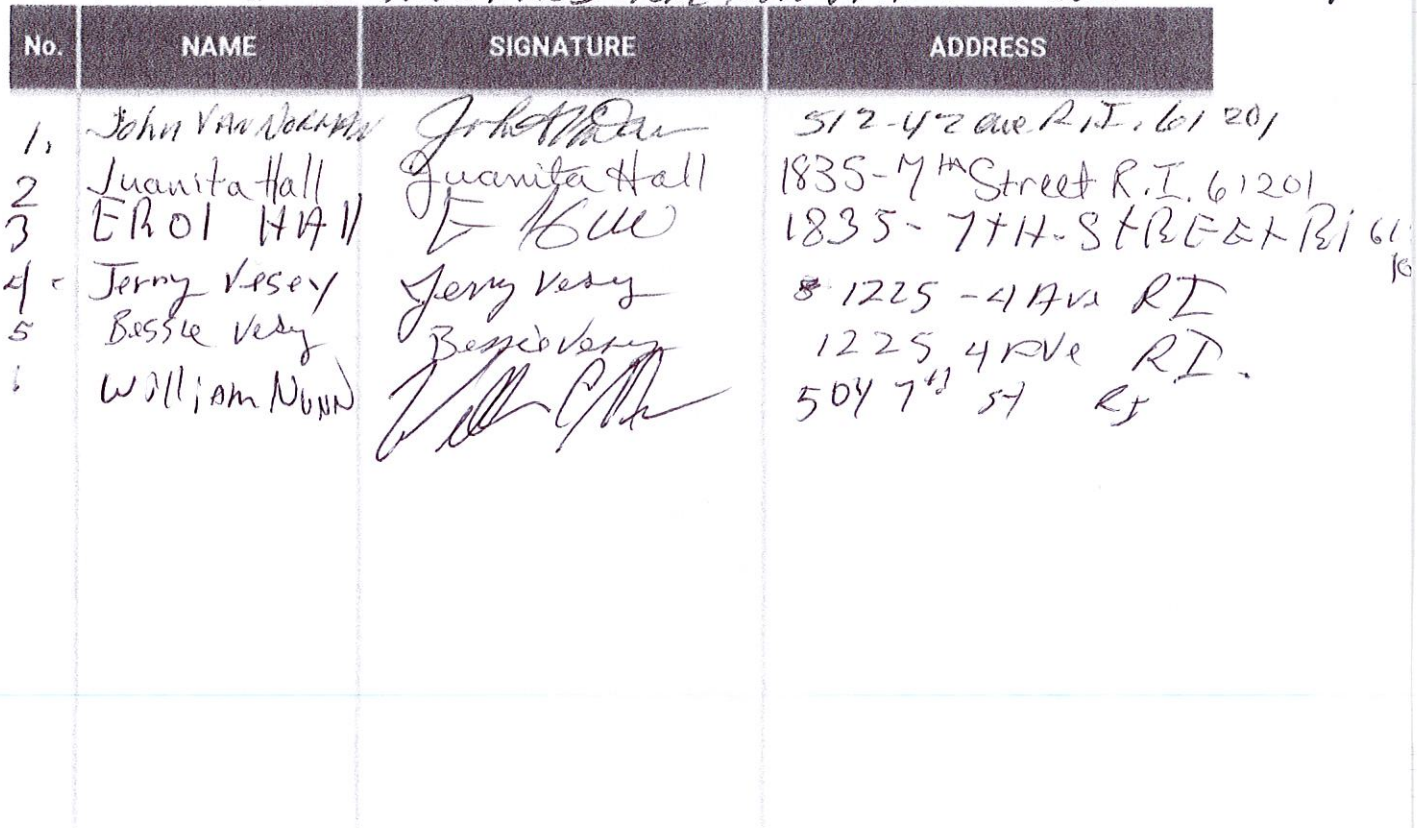 No. NAME SIGNATURE ADDRESS
1, John VAN NORMAN 512-42 ave R.I. 61201
2 Juanita Hall Juanita Hall 1835-7th Street R.I. 61201
3 EROl HAll 1835-7tH-StREEt RI 61
4 - Jerry Vesey Jerry Vesey 1225-4 Ave RI
5 Bessie Vesey Bessie Vesey 1225 4 AVe RI.
William NUNN 504 7th st RI